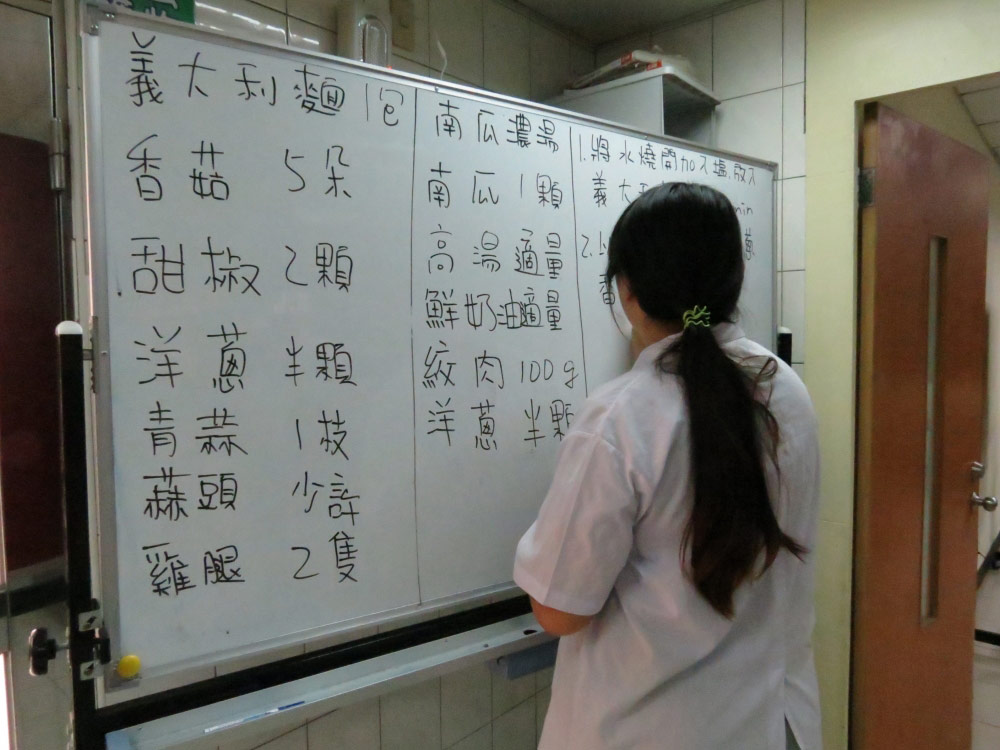 義大利麵 1包
香菇 5朵
甜椒 2顆
洋蔥 半顆
青蒜 1枝
蒜頭 少許
雞腿 2隻
南瓜濃湯
南瓜 1顆
高湯 適量
鮮奶油適量
絞肉 100g
洋蔥 半顆
1.將水燒開加入塩、放入
義大 min
2. 蔥
香